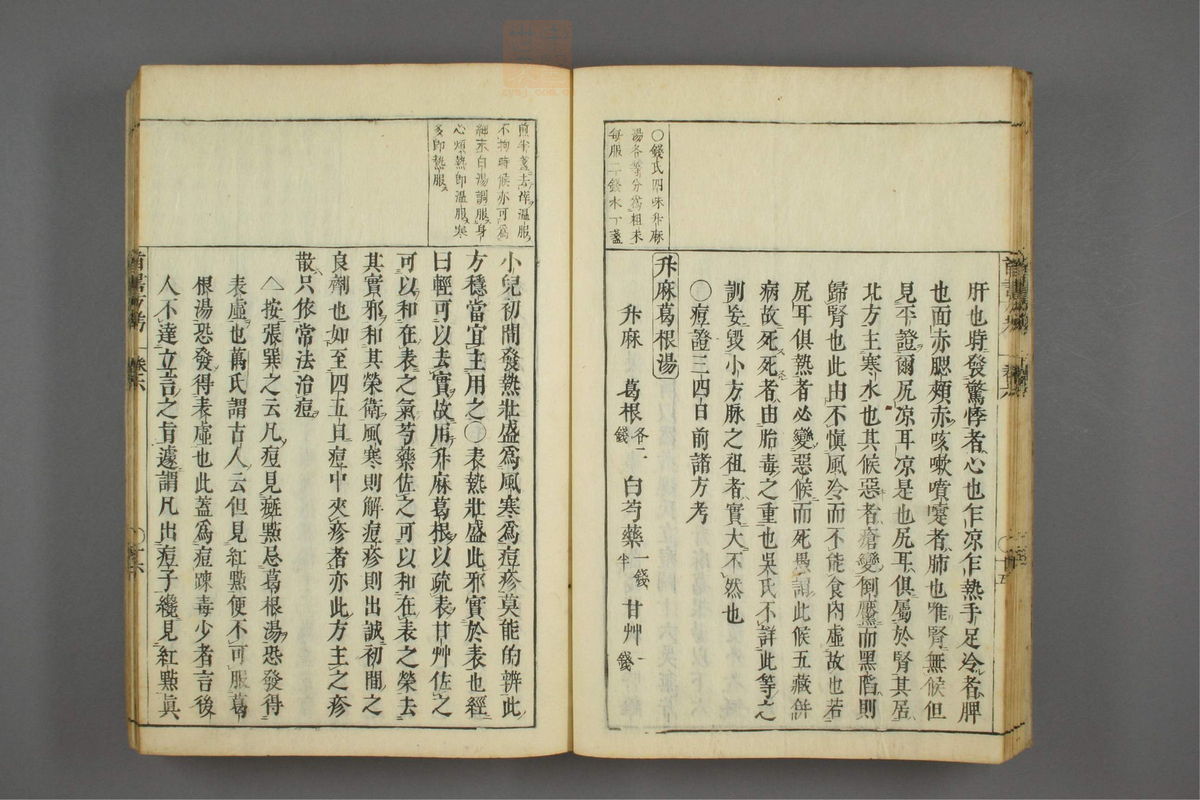 〇錢氏四味升麻
湯各等分爲粗末
每服二錢水一盞
肝也時發驚悸者心也乍凉乍熱手足冷者脾
也面赤腮頰赤咳嗽噴嚏者肺也唯腎無候但
見平證爾尻凉耳凉是也尻耳俱屬於腎其居
北方主寒水也其候惡者瘡變倒黶而黑陷則
歸腎也此由不愼風冷而不能食內虛故也若
尻耳俱熱者必變惡候而死愚謂此候五藏倂
病故死死者由胎毒之重也吳氏不詳此等之
訓妄毀小方脉之祖者實大不然也
〇痘證三四日前諸方考
升麻葛根湯
升麻 葛根各二錢 白芍藥一錢半 甘艸一錢
煎半盞去滓溫服
不拘時候亦可爲
細末白湯調服身
心煩熱卽溫服寒
多卽熱服
小兒初間發熱壯盛爲風寒爲痘疹莫能的辨此
方穩當宜主用之〇表熱壯盛此邪實於表也經
曰輕可以去實故用升麻葛根以疏表甘艸佐之
可以和在表之氣芍藥佐之可以和在表之榮去
其實邪和其榮衛風寒則解痘疹則出誠初間之
良劑也如至四五日痘中夾疹者亦此方主之疹
散只依常法治痘
按張巽之云凡痘見斑點忌葛根湯恐發得
表虛也萬氏謂古人云但見紅點便不可服葛
根湯恐發得表虛也此蓋爲痘踈毒少者言後
人不達立言之肯遽謂凡出痘子纔見紅點眞
卷六